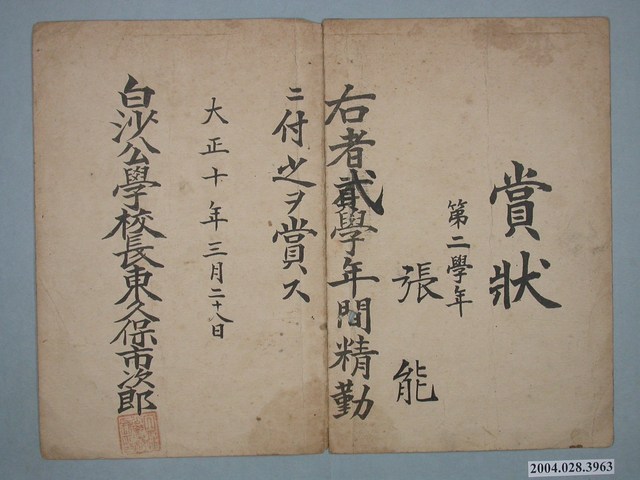 賞狀
第二學年
張能
右者貳學年間精勤
ニ付之ヲ賞ス
大正十年三月二十八日
白沙公學校長東久保市次郎
2004.028.3963